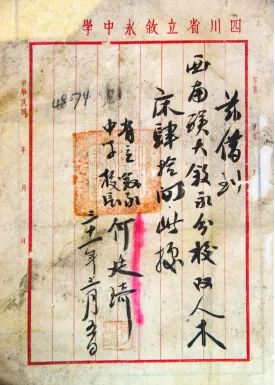 四川省立敘永中學
茲借到
西南聯大敘永分校双人木
床肆拾間此據
省立敘永
中學校長 何廷
三十一年月五日
中華民國 年 月 日
4874